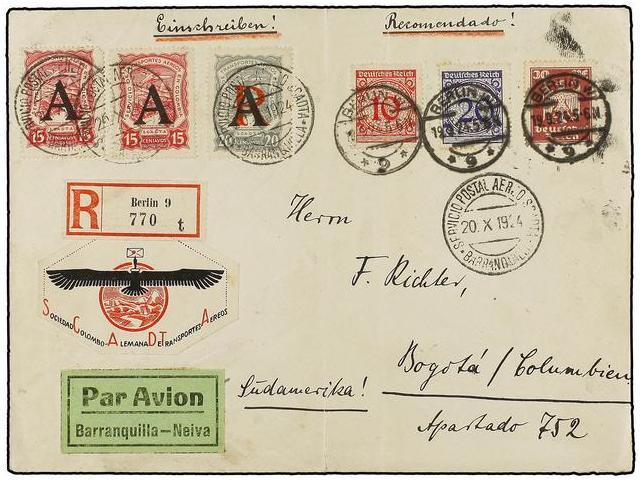 Einschreiben!
Recomendado!
A
15
15
CENTAVOS
A
15
15
CENTAVOS
A
R
20
Deutsches Reich
10
Deutsches Reich
20
30
BERLIN
9
BERLIN
9
BERLIN
9
R
Berlin 9
770 t
SERVICIO POSTAL AEREO SCADTA
20. X 1924
BARRANQUILLA
Herrn
F. Richter,
SOCIEDAD COLOMBO-ALEMANA DE TRANSPORTES AEREOS
Bogotá / Columbien
Par Avion
Barranquilla—Neiva
Südamerika!
Apartado 752